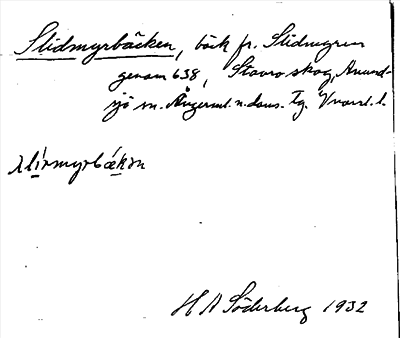 Slidmyrbäcken, bäck fr. Slidmyren
genom 638, Stavro skog, Anund-
sjö sn. Ångerml. n. doms. Tg. V
slírmyrbækɘn
H A Söderberg 1932